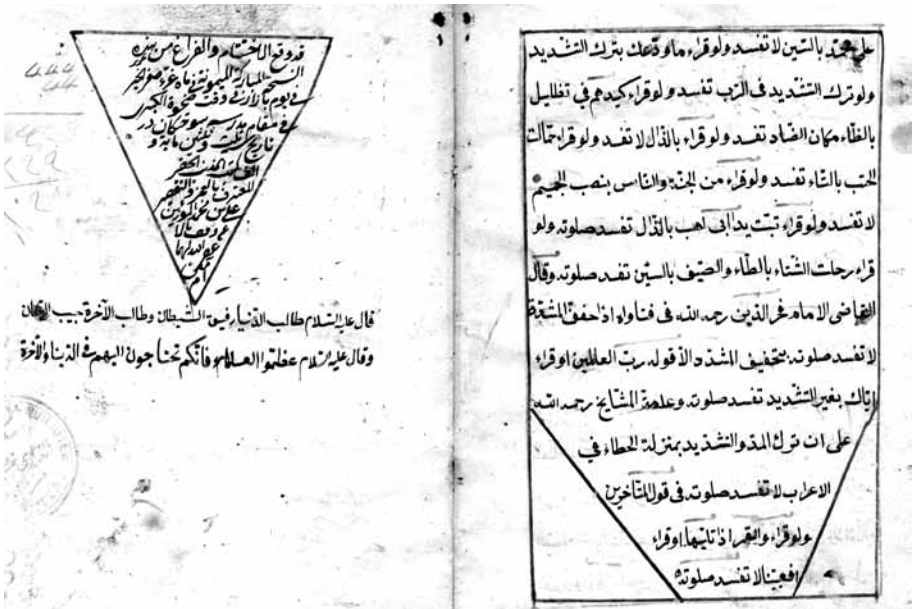 على محمد بالسّين لا تفسد ولو قراء ما ودّعك بترك التشديد
ولو ترك التشديد فى الرب تفسد ولو قراء كيدهم في تظليل
بالظاء مكان الضاد تفسد ولو قراء بالذال لا تفسد ولو قراء حمالت
الحتب بالتاء تفسد ولو قراء من الجنة والناس بنصب الجيم
لا تفسد ولو قراء تبت يدا ابى لهب بالذال تفسد صلوته ولو
قراء رحلت الشتاء بالطاء والصيف بالسين تفسد صلوته وقال
القاضى الامام فخر الدين رحمه الله فى فتاواه اذا خفف المشدد
لا تفسد صلوته بتخفيف المشدد الا قوله رب العالمين او قراء
اياك بغير التشديد تفسد صلوته وعامة المشايخ رحمه الله
على ان ترك المد والتشديد بمنزلة الخطاء في
الاعراب لا تفسد صلوته فى قول المتأخرين
ولو قراء والقمر اذا تليها او قراء
افعيينا لا تفسد صلوته
قد وقع الاختتام والفراغ من هذه
النسخة المباركة الميمونة في ماه
في يوم بازار في وقت ضحوة الكبرى
في مقام مدرسه در
تاريخ مأية و
الف الحقير
المعترف بالعجز والتقصير
على بن محمد
عفى الله لهما
قال عليه السلام طالب الدنيا رفيق الشيطان وطالب الآخرة حبيب الرحمان
وقال عليه السلام عظموا العلماء فانكم تحتاجون اليهم في الدنيا والآخرة
444
44